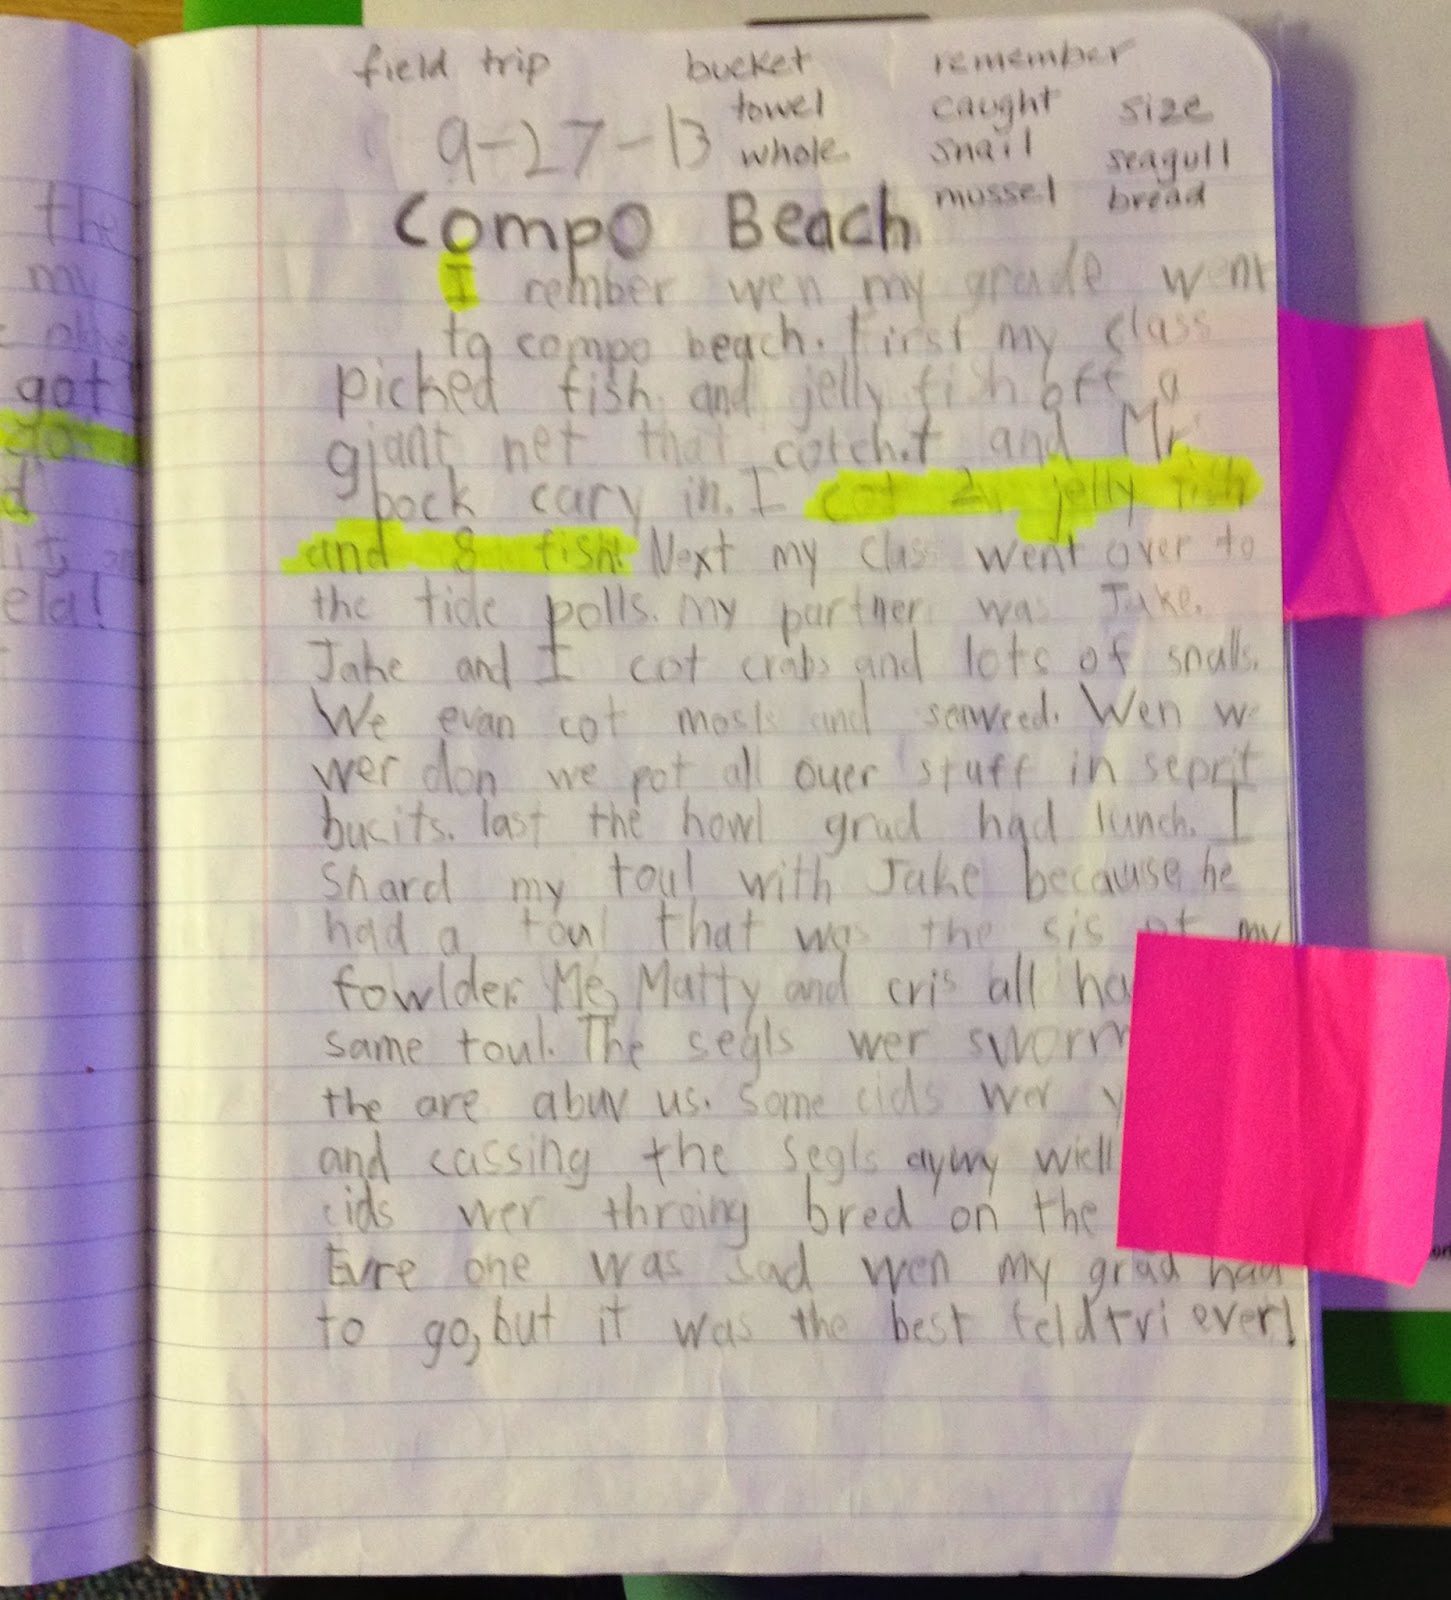 field trip bucket remember
towel caught size
9-27-13 whole snail seagull
mussel bread
Compo Beach
I rember wen my grade went
to compo beach. First my class
picked fish and jelly fish off a
giant net that and Mr.
bock cary in. I cot 2 jelly fish
and 8 fish! Next my class went over to
the tide polls. my partner was Jake.
Jake and I cot crabs and lots of snalls.
We evan cot mosls and seaweed. Wen we
wer don we pot all ouer stuff in seprit
bucits. last the howl grad had lunch. I
Shard my toul with Jake because he
had a toul that was the sis of my
fowlder. Me, Matty and cris all
same toul. The segls wer
the are abuv us. Some cids wer
and cassing the segls
cids wer throing bred on the
Evre one was sad wen my grad had
to go, but it was the best feldtri ever!
the
my
got
d
ela!